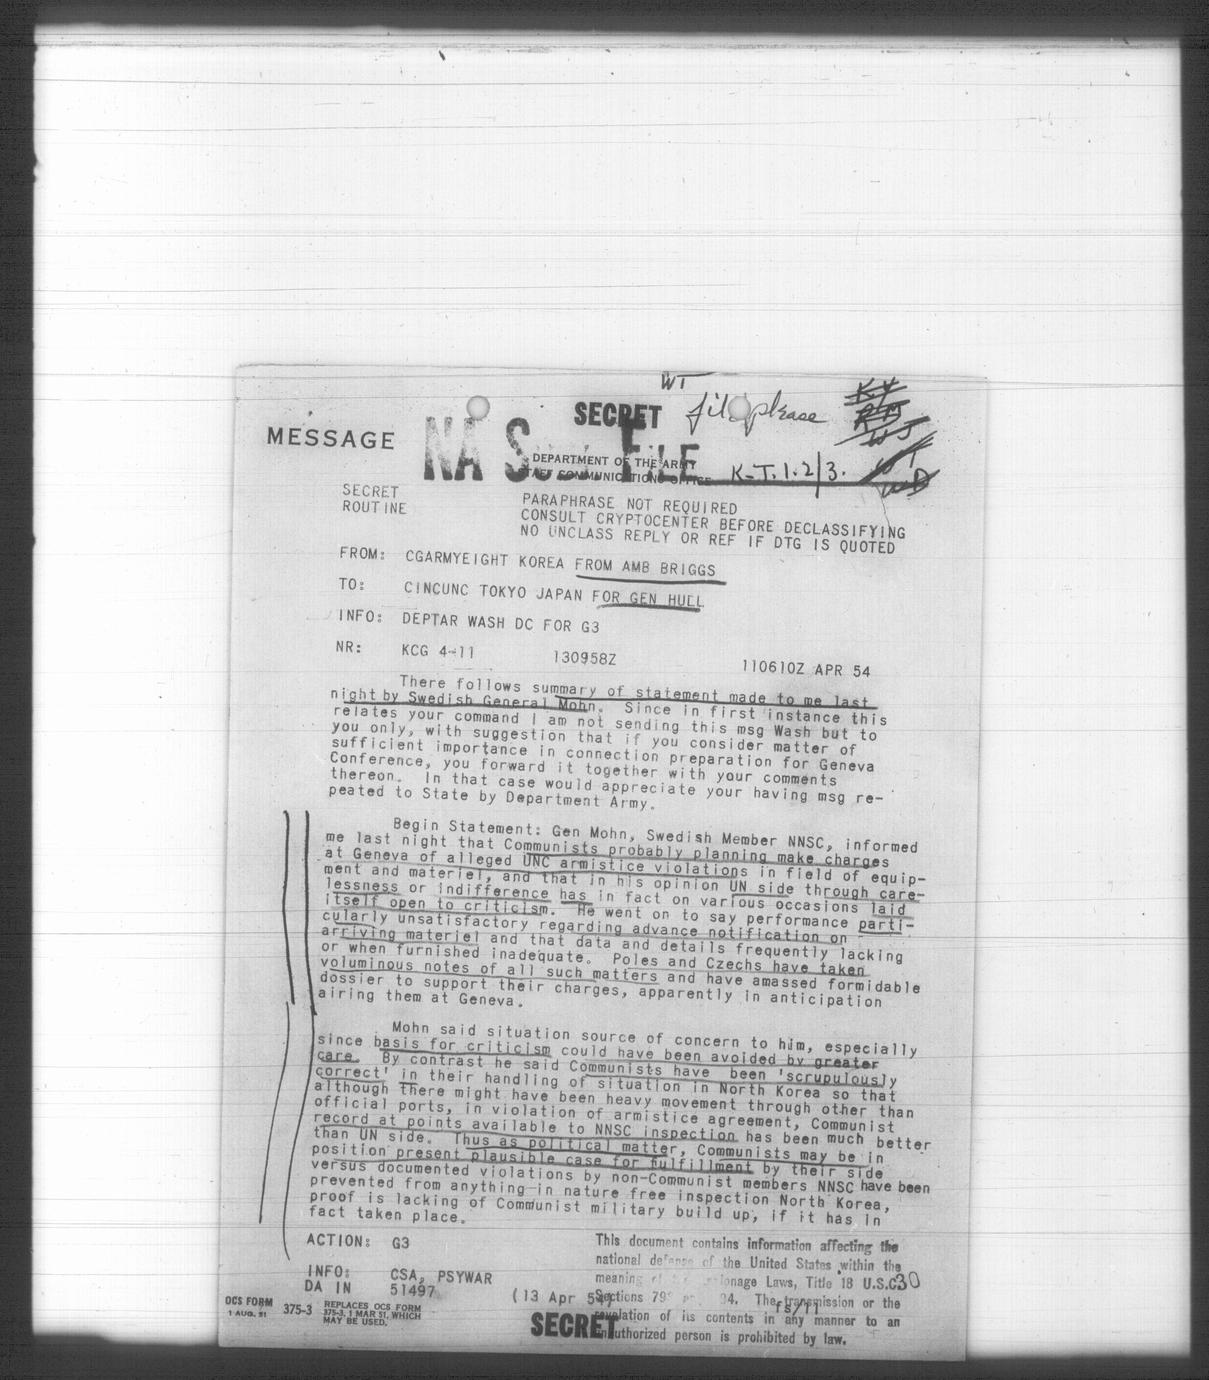 WT
SECRET file please
MESSAGE NA S FILE
DEPARTMENT OF THE ARMY
STAFF COMMUNICATIONS OFFICE K-T.1.2/3.
SECRET
ROUTINE
PARAPHRASE NOT REQUIRED
CONSULT CRYPTOCENTER BEFORE DECLASSIFYING
NO UNCLASS REPLY OR REF IF DTG IS QUOTED
FROM: CGARMYEIGHT KOREA FROM AMB BRIGGS
TO: CINCUNC TOKYO JAPAN FOR GEN HULL
INFO: DEPTAR WASH DC FOR G3
NR: KCG 4-11 130958Z 110610Z APR 54
There follows summary of statement made to me last
night by Swedish General Mohn. Since in first instance this
relates your command I am not sending this msg Wash but to
you only, with suggestion that if you consider matter of
sufficient importance in connection preparation for Geneva
Conference, you forward it together with your comments
thereon. In that case would appreciate your having msg re-
peated to State by Department Army.
Begin Statement: Gen Mohn, Swedish Member NNSC, informed
me last night that Communists probably planning make charges
at Geneva of alleged UNC armistice violations in field of equip-
ment and materiel, and that in his opinion UN side through care-
lessness or indifference has in fact on various occasions laid
itself open to criticism. He went on to say performance parti-
cularly unsatisfactory regarding advance notification on
arriving materiel and that data and details frequently lacking
or when furnished inadequate. Poles and Czechs have taken
voluminous notes of all such matters and have amassed formidable
dossier to support their charges, apparently in anticipation
airing them at Geneva.
Mohn said situation source of concern to him, especially
since basis for criticism could have been avoided by greater
care. By contrast he said Communists have been 'scrupulously
correct' in their handling of situation in North Korea so that
although there might have been heavy movement through other than
official ports, in violation of armistice agreement, Communist
record at points available to NNSC inspection has been much better
than UN side. Thus as political matter, Communists may be in
position present plausible case for fulfillment by their side
versus documented violations by non-Communist members NNSC have been
prevented from anything in nature free inspection North Korea,
proof is lacking of Communist military build up, if it has in
fact taken place.
ACTION: G3
INFO: CSA, PSYWAR
DA IN 51497 (13 Apr 54)
This document contains information affecting the
national defense of the United States within the
meaning of the Espionage Laws, Title 18 U.S.C.
Sections 793 and 794. The transmission or the
revelation of its contents in any manner to an
unauthorized person is prohibited by law.
30
fs/11
OCS FORM
1 AUG. 51
375-3
REPLACES OCS FORM
375-3, 1 MAR 51, WHICH
MAY BE USED.
SECRET